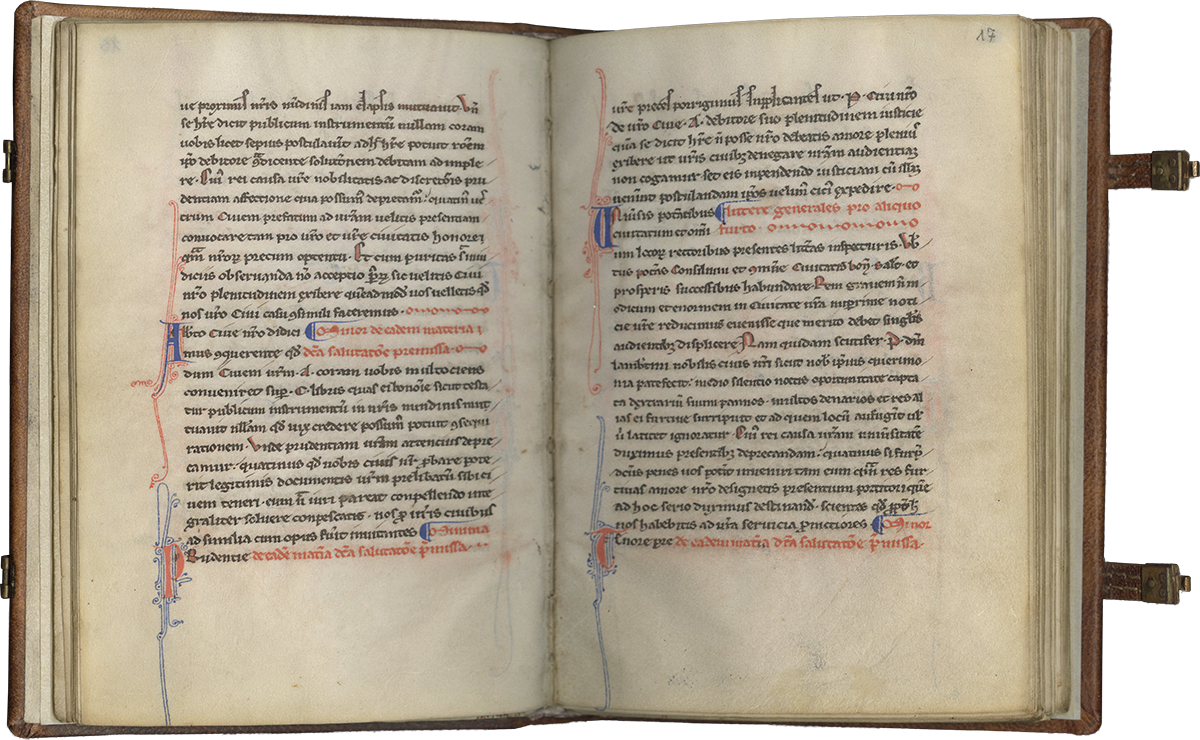 ue proximis nr̄is nūdinis iam elapsis mutuauit. Vn̄
se hr̄e dicit publicum instrumentū nullam coram
uobis licet sepius postulauit adhˢ hr̄e potuit rōem
ip̄o debitore 9dicente solutōnem debitam ad imple
re. Cuiˢ rei causa ur̄e nobilitatis ac discretōnis pru
dentiam affectione qua possumˢ deprecamˢ quatinˢ ue
trum Ciuem prefatum ad ur̄am uelitis presentiam
conuocare tam pro ur̄o et ur̄e ciuitatis honore
nr̄oꝝ precum optentu. Et cum puritas
dicus obseruanda nō acceptio sic uelitis Ciui
nr̄o plenitudinem exibere quēadmodū uos uelletis qd̄
nos ur̄o Ciui casu 9simili faceremus.
Alb̄to Ciue nr̄o didici Minor de eadem materia
mus 9querente qd̄ dc̄a salutatōe premissa
dum Ciuem ur̄m .A. coram uobis in ulto ciens
conuenir et sup̄ .C. libris quas ei bonōie sicut testa
tur publicum instrumentū in nr̄is nundinis mut
tuauit nullam qd̄ uix credere possumˢ potuit 9sequi
rationem. Vnde prudentiam ur̄am attencius depre
camur. quatinus qd̄ nobis ciuis nr̄ pbare pote
rit legitimis documentis ur̄m prelibatū sibi ci
uem teneri. eum n̄ iuri pareat conpellendo inte
graliter soluere conpescatis. nos p̱ ur̄is ciuibus
ad similia cum opus fuit inuitantes Minima
Prudentie de eadē mat̄ia dc̄a salutatōe p̄missa.
17
ur̄e preces porrigimus supplicantes ut .P. Ciui nr̄o
de ur̄o Ciue .A. debitore suo plenitudinem iusticie
qua se dicit hr̄e n̄ posse nr̄o debeatis amore plenius
exibere ut ur̄is ciuibꝫ denegare nr̄am audientiaꝫ
non cogamur set eis inpendendo iusticiam cū illaꝫ
uenint postulandam ip̄os uelimˢ cicˢ expedire.
Vniuˢsis potc̄atibus Littere generales pro aliquo
ciuitatum et omī furto.
um locoꝝ rectoribus presentes litt̄as inspecturis. Vb̄
tus potc̄as Consilium et 9mune Ciuitatis bon̄. Salt̄. et
prosperis successibus habundare. Rem grauem n̄ m
odicum et enormem in Ciuitate ur̄a nuprime noti
cie ur̄e reducimus euenisse que merito debet singlis
audientibꝫ displicere. Nam quidam scutifer .P. dn̄i
lambtini nobilis ciuis nr̄i sicut nob̄ ip̄ius querimo
nia patefecit. medio silentio noctis oportunitate capta
ta dextrariū suum pannos. multos denarios et res al
ias ei furtiue surripuit et ad quem locū aufugit ul̄
ū latitet ignoratur. Cuiˢ rei causa ur̄am uniuˢsitatē
duximus presentibꝫ deprecandam. quatinus si furꝫ p̄
dc̄us penes uos potit inueniri tam eum qm̄ res fur
tiuas amore nr̄o designetis presentium portitori quē
ad hoc serio duximus destinand̄. scientes qd̄
nos habebitis ad ur̄a seruicia p̱nictiores Minor
Tenore pre de eadem mat̄ia dc̄a salutatōe p̄missa.